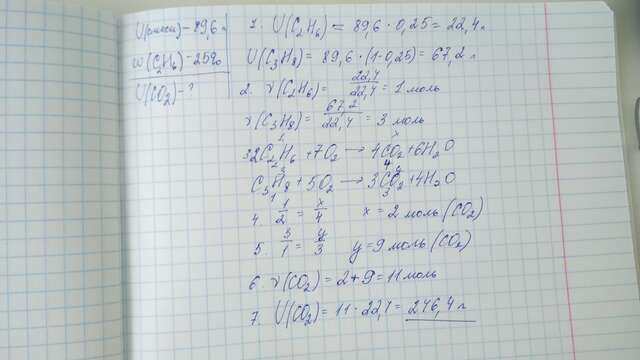 V(смеси) = 89,6 л
ω(C₂H₆) = 25%
V(CO₂) - ?
1 V(C₂H₆) = 89,6 · 0,25 = 22,4 л
V(C₃H₈) = 89,6 · (1-0,25) = 67,2 л
2. ν(C₂H₆) = 22,4 / 22,4 = 1 моль
ν(C₃H₈) = 67,2 / 22,4 = 3 моль
3 2C₂H₆ + 7O₂ → 4CO₂ + 6H₂O
C₃H₈ + 5O₂ → 3CO₂ + 4H₂O
4 1/2 = x/4 x = 2 моль (CO₂)
5. 3/1 = y/3 y = 9 моль (CO₂)
6 ν(CO₂) = 2 + 9 = 11 моль
7 V(CO₂) = 11 · 22,4 = 246,4 л